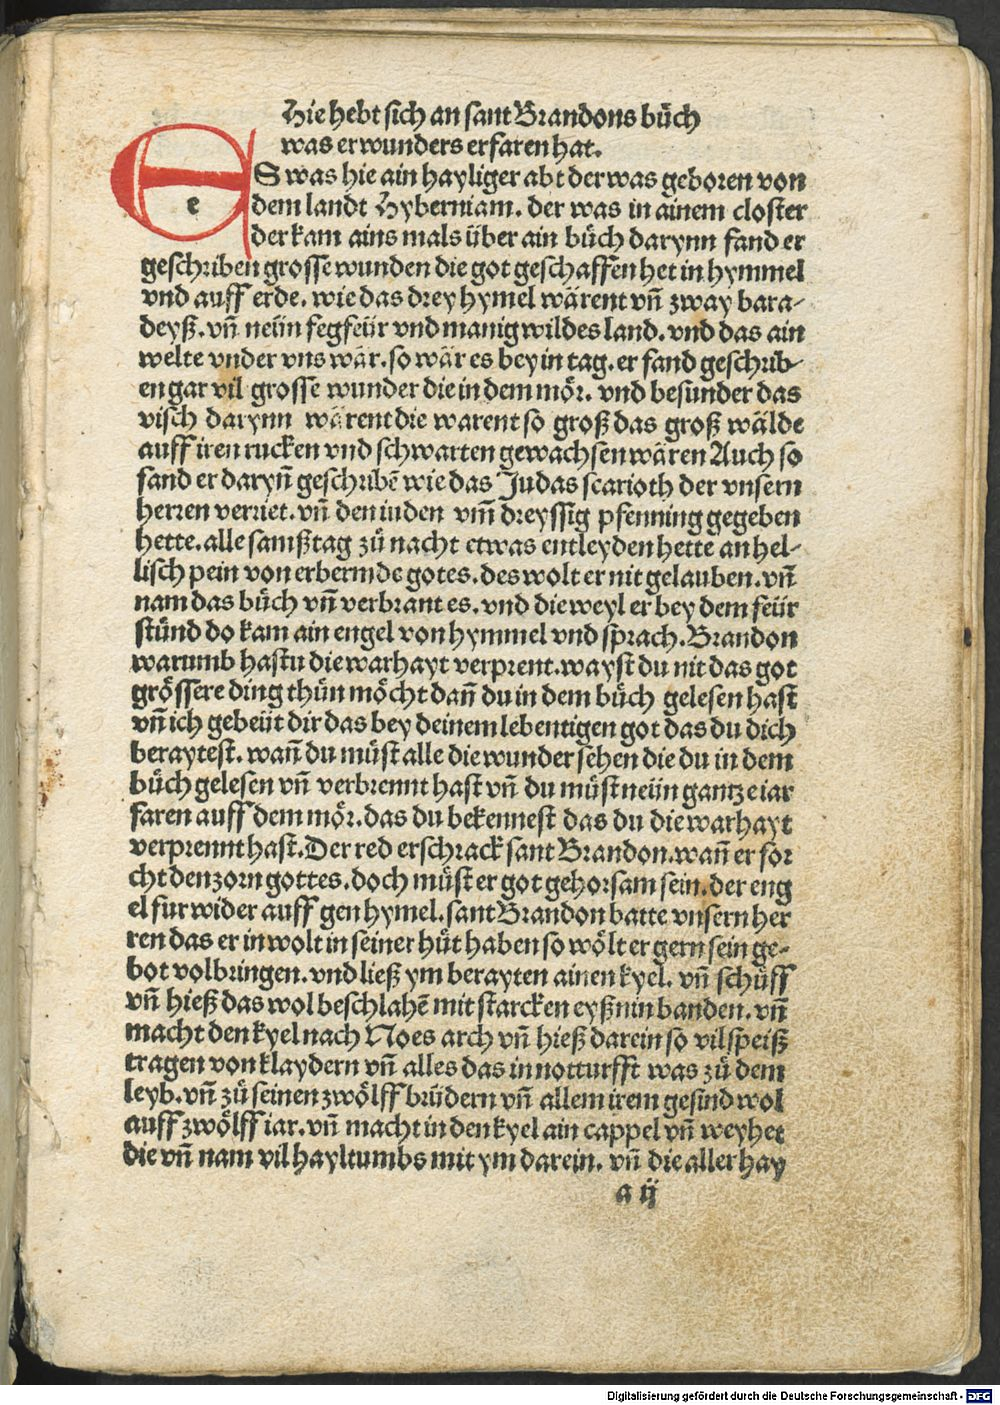 Hie hebt sich an sant Brandons bůch
was er wunders erfaren hat.
eS was hie ain hayliger abt der was geboren von
dem landt Hyberniam. der was in ainem closter
der kam ains mals über ain bůch darynn fand er
geschriben grosse wunden die got geschaffen het in hymmel
vnd auff erde. wie das drey hymel wärent vñ zway bara-
deyß. vñ neün fegfeür vnd manig wildes land. vnd das ain
welte vnder vns wär. so wär es bey in tag. er fand geschrib-
en gar vil grosse wunder die in dem mör. vnd besunder das
visch darynn wärent die warent so groß das groß wälde
auff iren rucken vnd schwarten gewachsen wären Auch so
fand er daryñ geschribē wie das Judas scarioth der vnsern
herren verriet. vñ den iuden vm̄ dreyssig pfenning gegeben
hette. alle samßtag zů nacht etwas entleyden hette an hel-
lisch pein von erbermde gotes. des wolt er nit gelauben. vñ
nam das bůch vñ verbrant es. vnd die weyl er bey dem feür
stůnd do kam ain engel von hymmel vnd sprach. Brandon
warumb hastu die warhayt verprent. wayst du nit das got
grössere ding thůn möcht dañ du in dem bůch gelesen hast
vñ ich gebeüt dir das bey deinem lebentigen got das du dich
beraytest. wañ du můst alle die wunder sehen die du in dem
bůch gelesen vñ verbrennt hast vñ du můst neün gantze iar
faren auff dem mör. das du bekennest das du die warhayt
verprennt hast. Der red erschrack sant Brandon. wañ er for
cht den zorn gottes. doch můst er got gehorsam sein. der eng
el fur wider auff gen hymel. sant Brandon batte vnsern her
ren das er in wolt in seiner hůt haben so wölt er gern sein ge-
bot volbringen. vnd ließ ym berayten ainen kyel. vñ schůff
vñ hieß das wol beschlahē mit starcken eyßnin banden. vñ
macht den kyel nach Noes arch vñ hieß darein so vil speiß
tragen von klaydern vñ alles das in notturfft was zů dem
leyb. vñ zů seinen zwölff brüdern vñ allem irem gesind wol
auff zwölff iar. vñ macht in den kyel ain cappel vñ weyhet
die vñ nam vil hayltumbs mit ym darein. vñ die aller hay
a ij
Digitalisierung gefördert durch die Deutsche Forschungsgemeinschaft - DFG